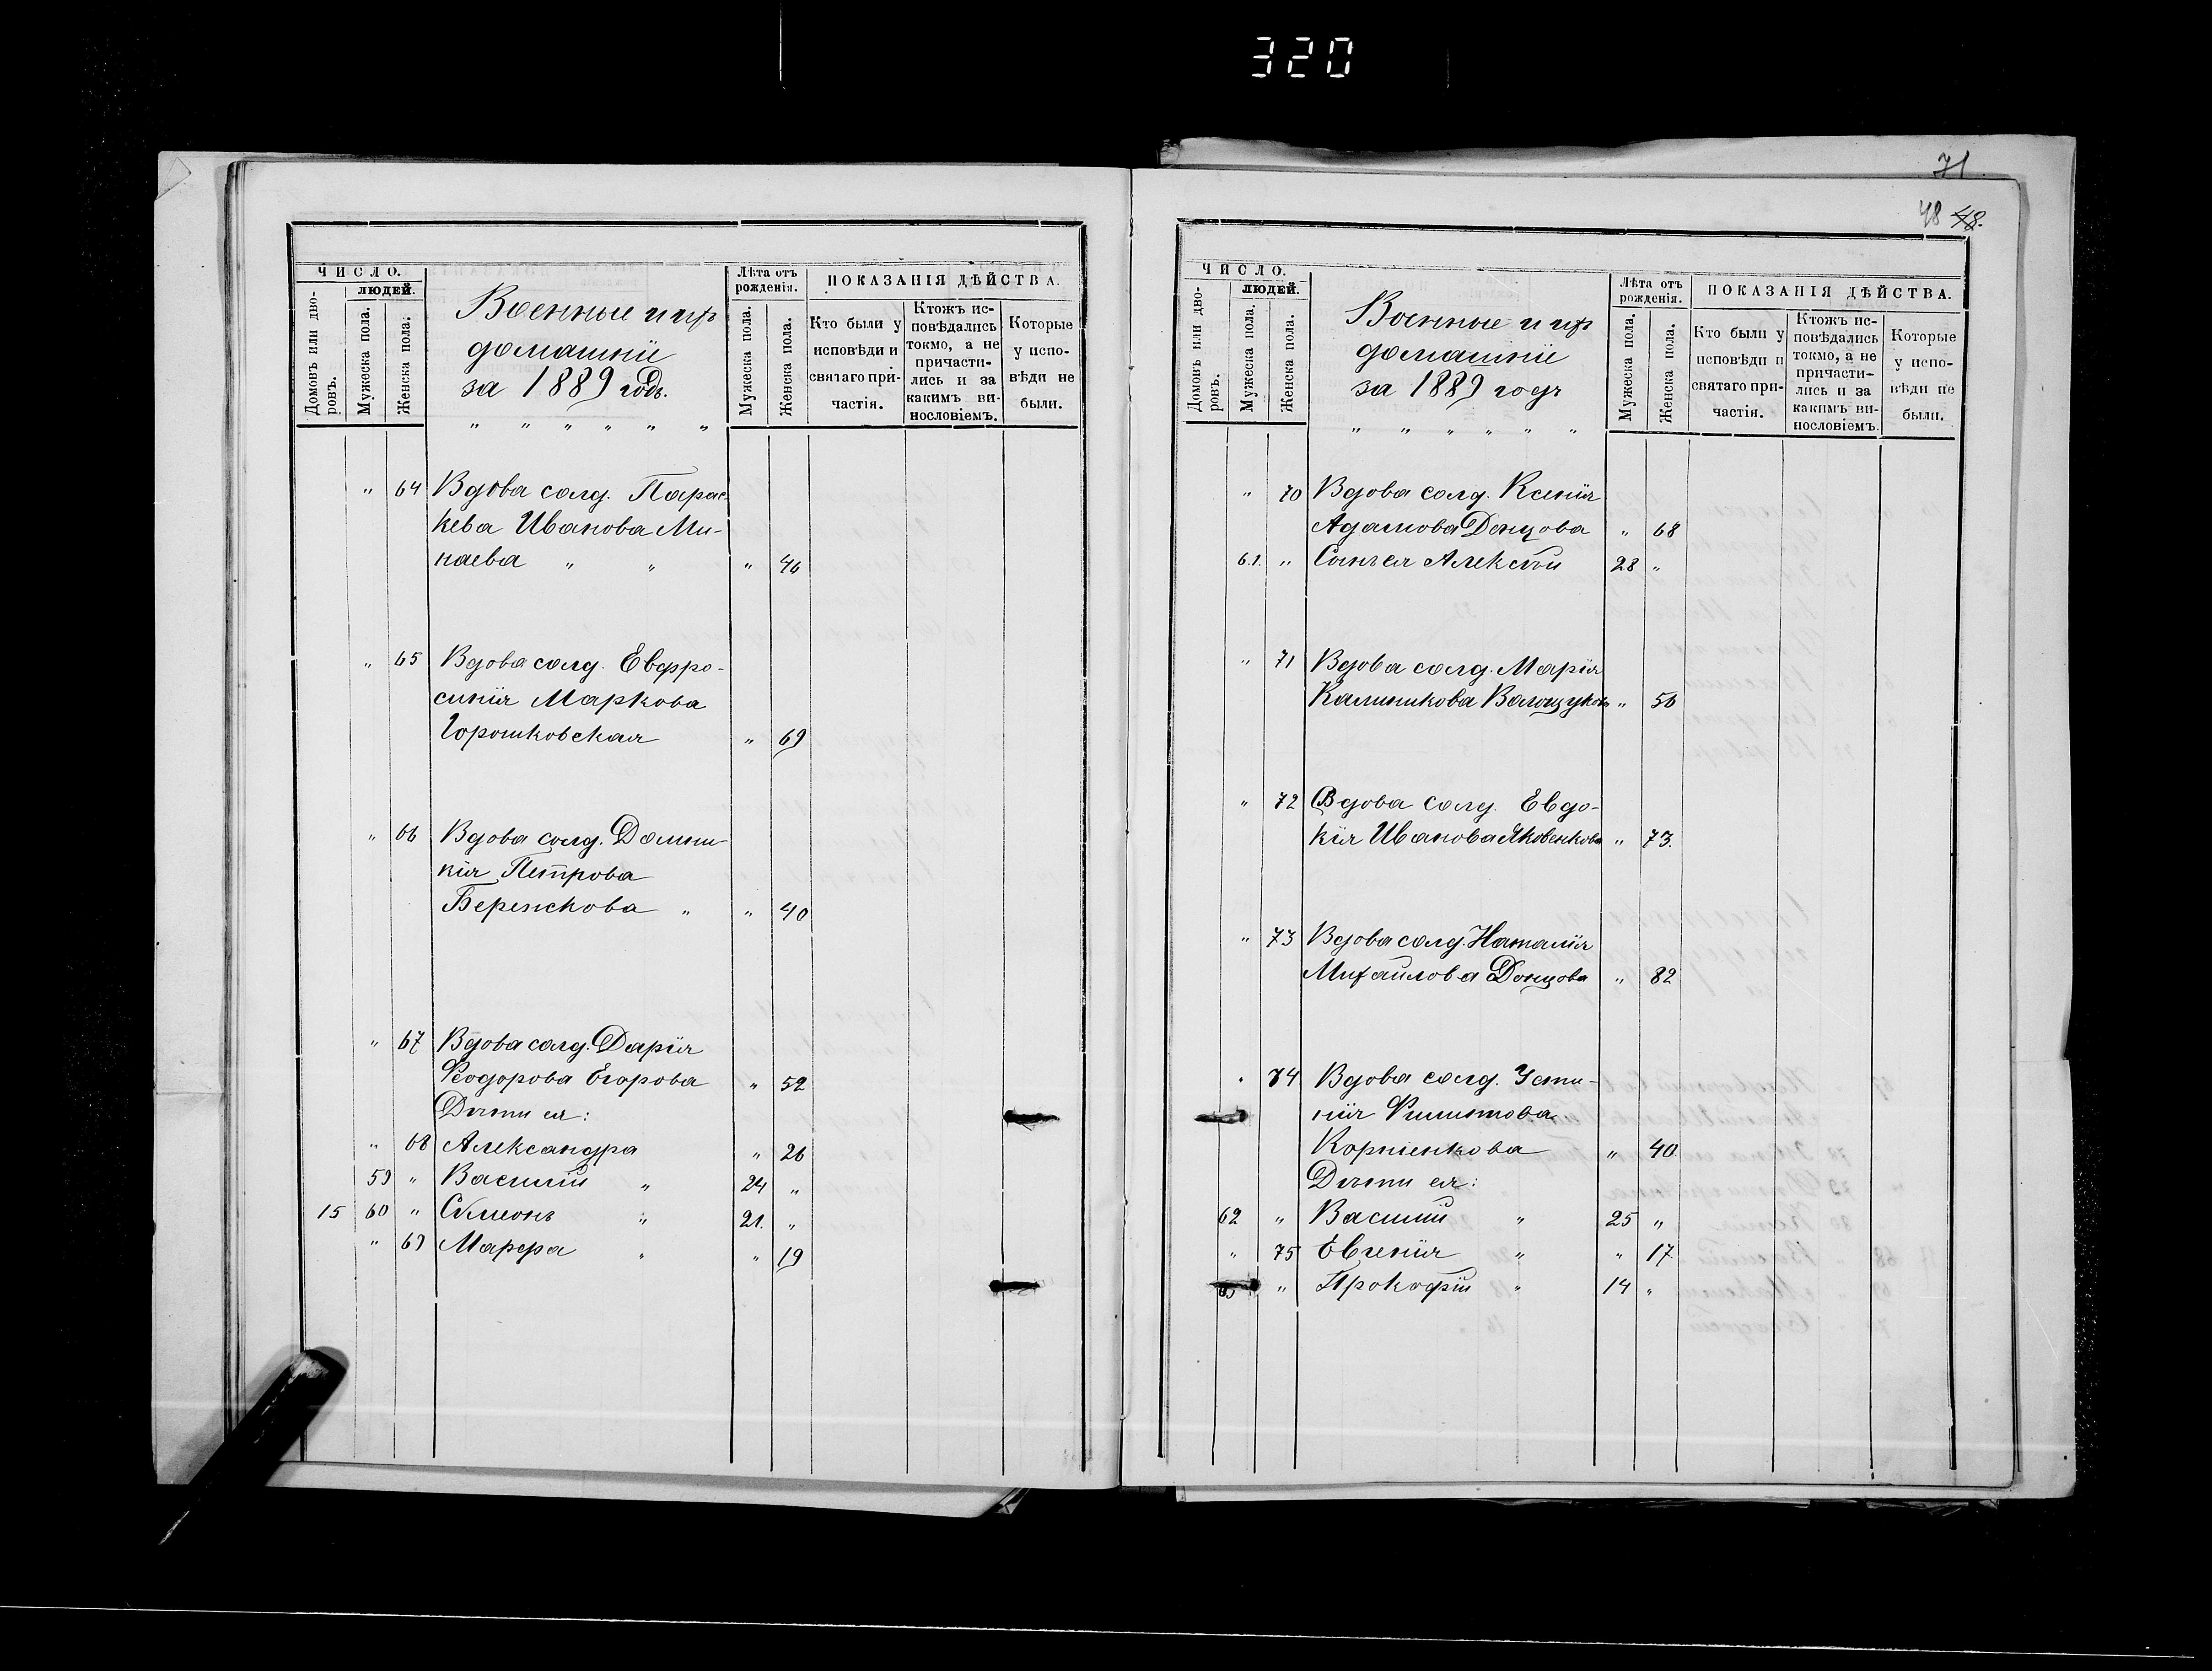 320
ЧИСЛО.
ЛЮДЕЙ.
Домовъ или дворовъ.
Мужеска пола.
Женска пола.
Военные и ихъ
домашніе
за 1889 годъ.
" " " " " "
Лѣта отъ рожденія.
Мужеска пола.
Женска пола.
ПОКАЗАНІЯ ДѢЙСТВА.
Кто были у исповѣди и святаго причастія.
Ктожъ исповѣдались токмо, а не причастились и за какимъ винословіемъ.
Которые у исповѣди не были.
" 64 Вдова солд. Парас-
кева Иванова Ми-
наева " " " 46
" 65 Вдова солд. Евфро-
синія Маркова
Горошковская " 69
" 66 Вдова солд. Домни-
кія Петрова
Бережкова " " 40
" 67 Вдова солд. Дарія
Ѳеодорова Егорова " 52
Дѣти ея:
" 68 Александра " 26
59 " Василій " 24 "
15 60 " Сѵмеонъ " 21. "
" 69 Марфа " " 19
71
48 48.
ЧИСЛО.
ЛЮДЕЙ.
Домовъ или дворовъ.
Мужеска пола.
Женска пола.
Военные и ихъ
домашніе
за 1889 годъ
" " " " " "
Лѣта отъ рожденія.
Мужеска пола.
Женска пола.
ПОКАЗАНІЯ ДѢЙСТВА.
Кто были у исповѣди и святаго причастія.
Ктожъ исповѣдались токмо, а не причастились и за какимъ винословіемъ.
Которые у исповѣди не были.
" 70 Вдова солд. Ксенія
Адамова Донцова " 68
61. " Сынъ ея Алексѣй 28 "
" 71 Вдова солд. Марія
Калиникова " 56
" 72 Вдова солд. Евдо-
кія Иванова Яковенкова " 73.
" 73 Вдова солд. Наталія
Михайлова Донцова " 82
" 74 Вдова солд. Усти-
нія Филиппова
Корніенкова " 40
Дѣти ея:
62 " Василій " 25 "
" 75 Евгенія " " 17
63 " Прокофій " 14 "